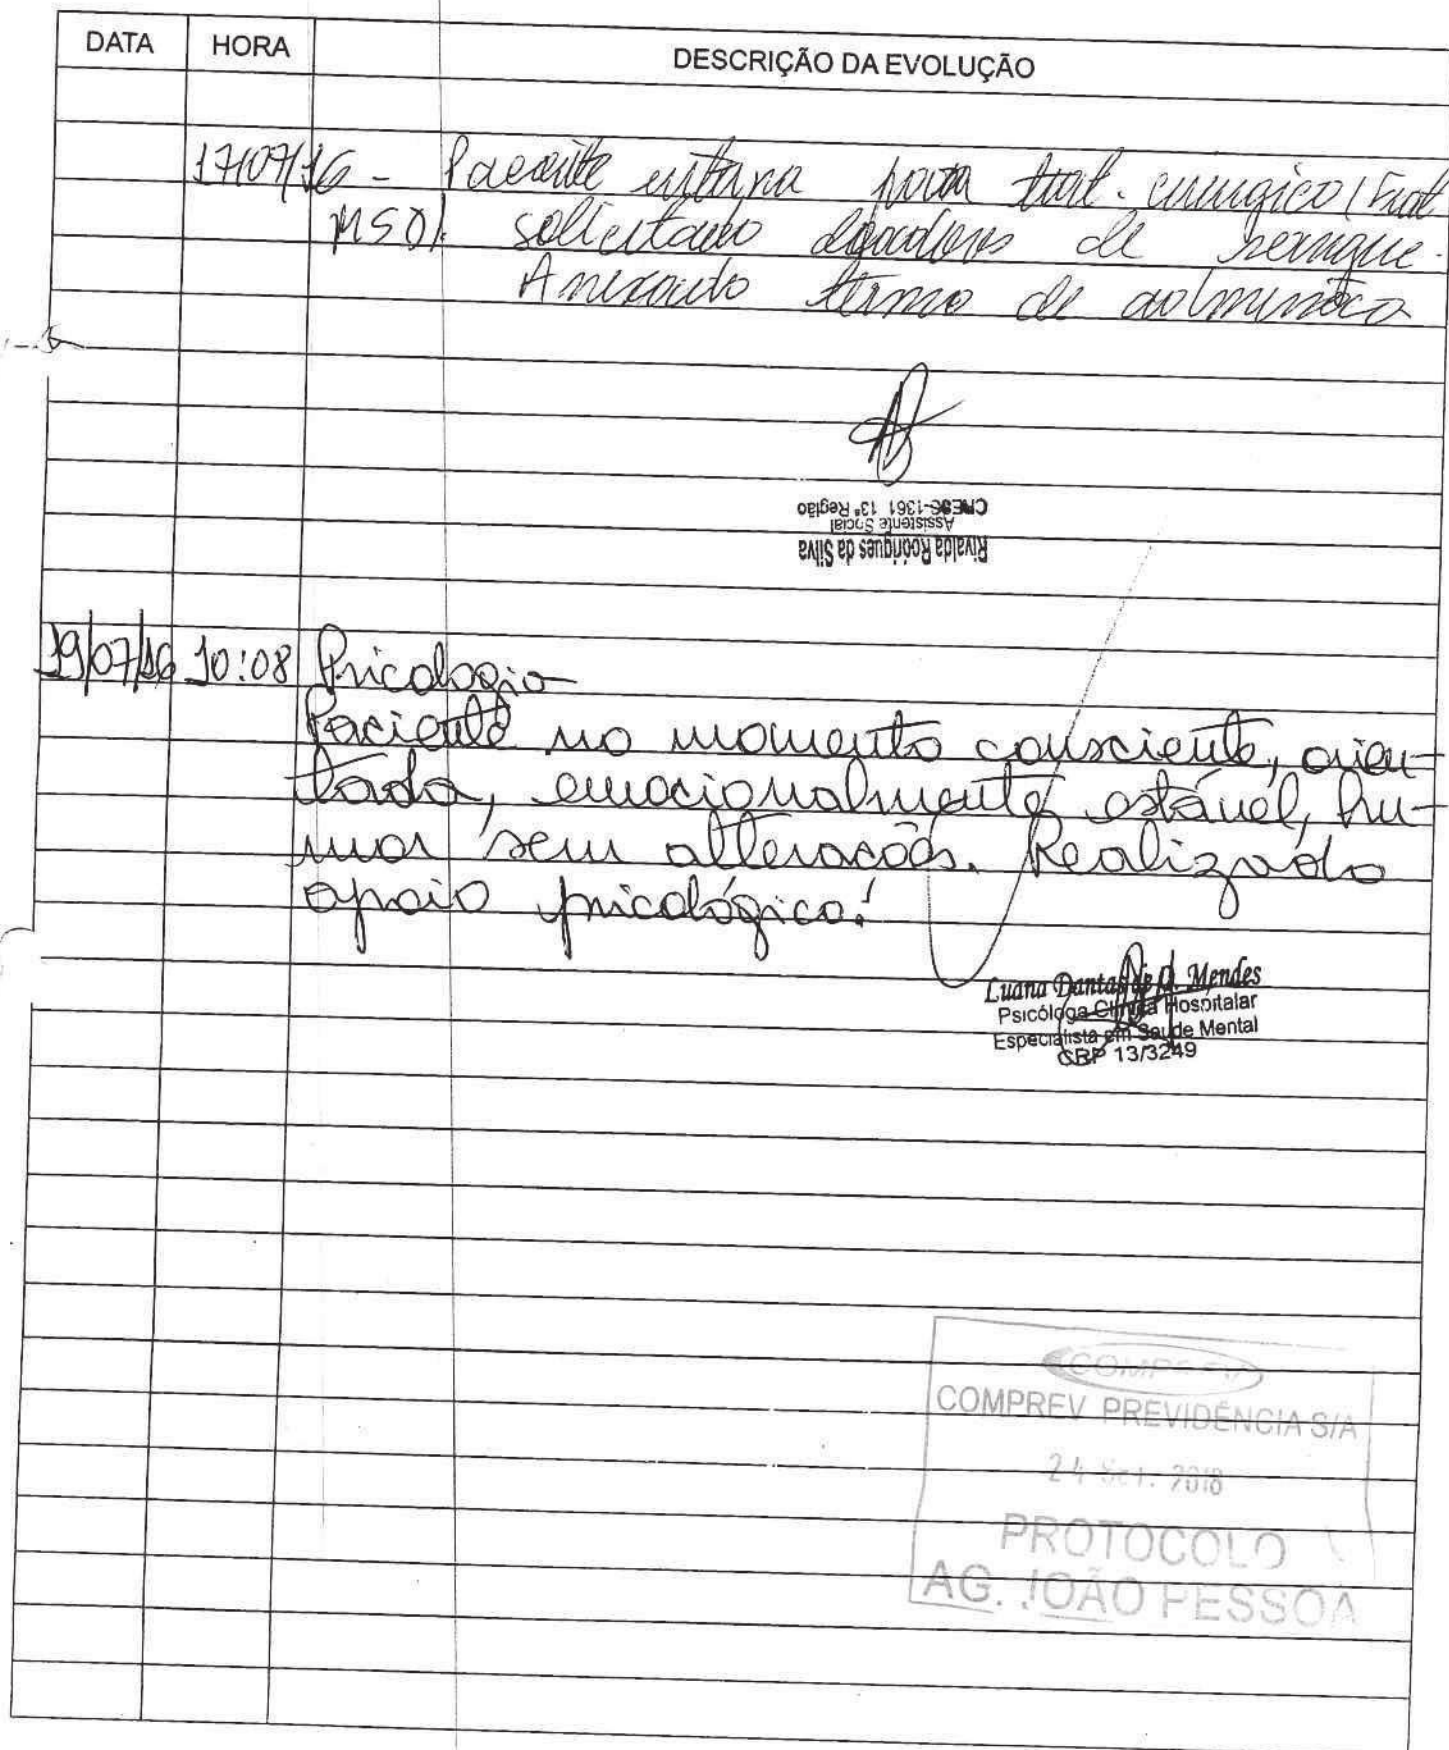 DATA HORA DESCRIÇÃO DA EVOLUÇÃO
17/07/16 - Paciente interna para trat. cirurgico (Frat.
MSD). solicitado doadores de sangue.
Anexado termo de
Rivalda Rodrigues da Silva
Assistente Social
1361 13ª Região
19/07/16 10:08 Psicologia
Paciente no momento consciente, orien-
tada, emocionalmente estável, hu-
mor sem alterações. Realizado
apoio psicológico.
Luana Dantas de Mendes
Psicóloga Clínica Hospitalar
Especialista em Saúde Mental
CRP 13/3249
COMPREV
COMPREV PREVIDÊNCIA S/A
24 Set. 2018
PROTOCOLO
AG. JOÃO PESSOA